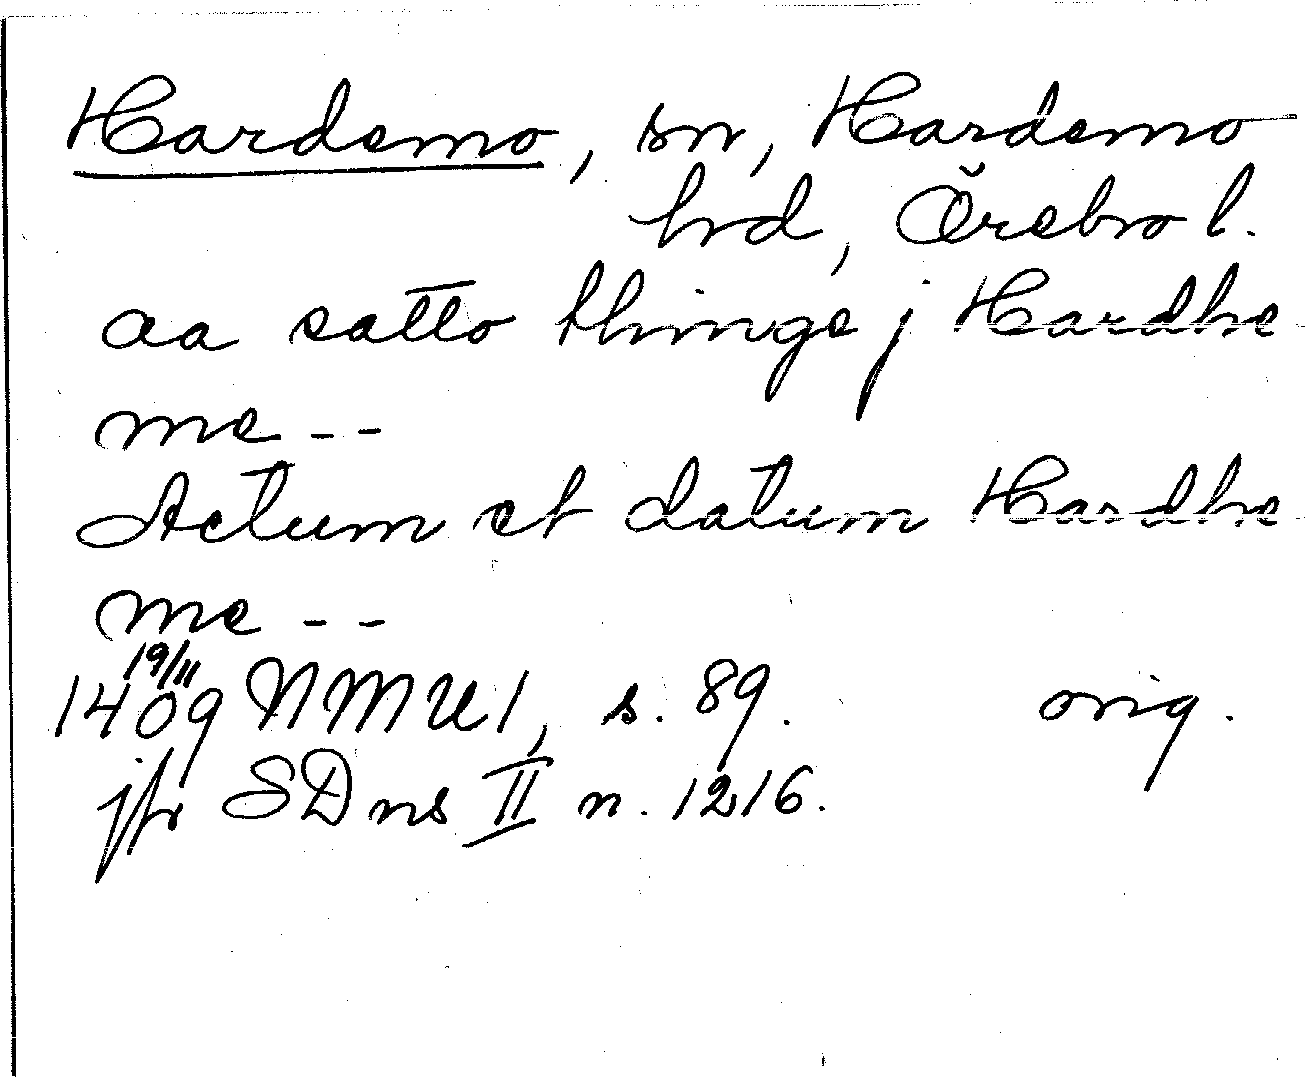 Hardemo, sn, Hardemo
hd, Örebro l.
aa satto thinge j Hardhe
me --
Actum et datum Hardhe
me --
19/11
1409 NMU 1, s. 89. orig.
jfr SD ns II n. 1216.